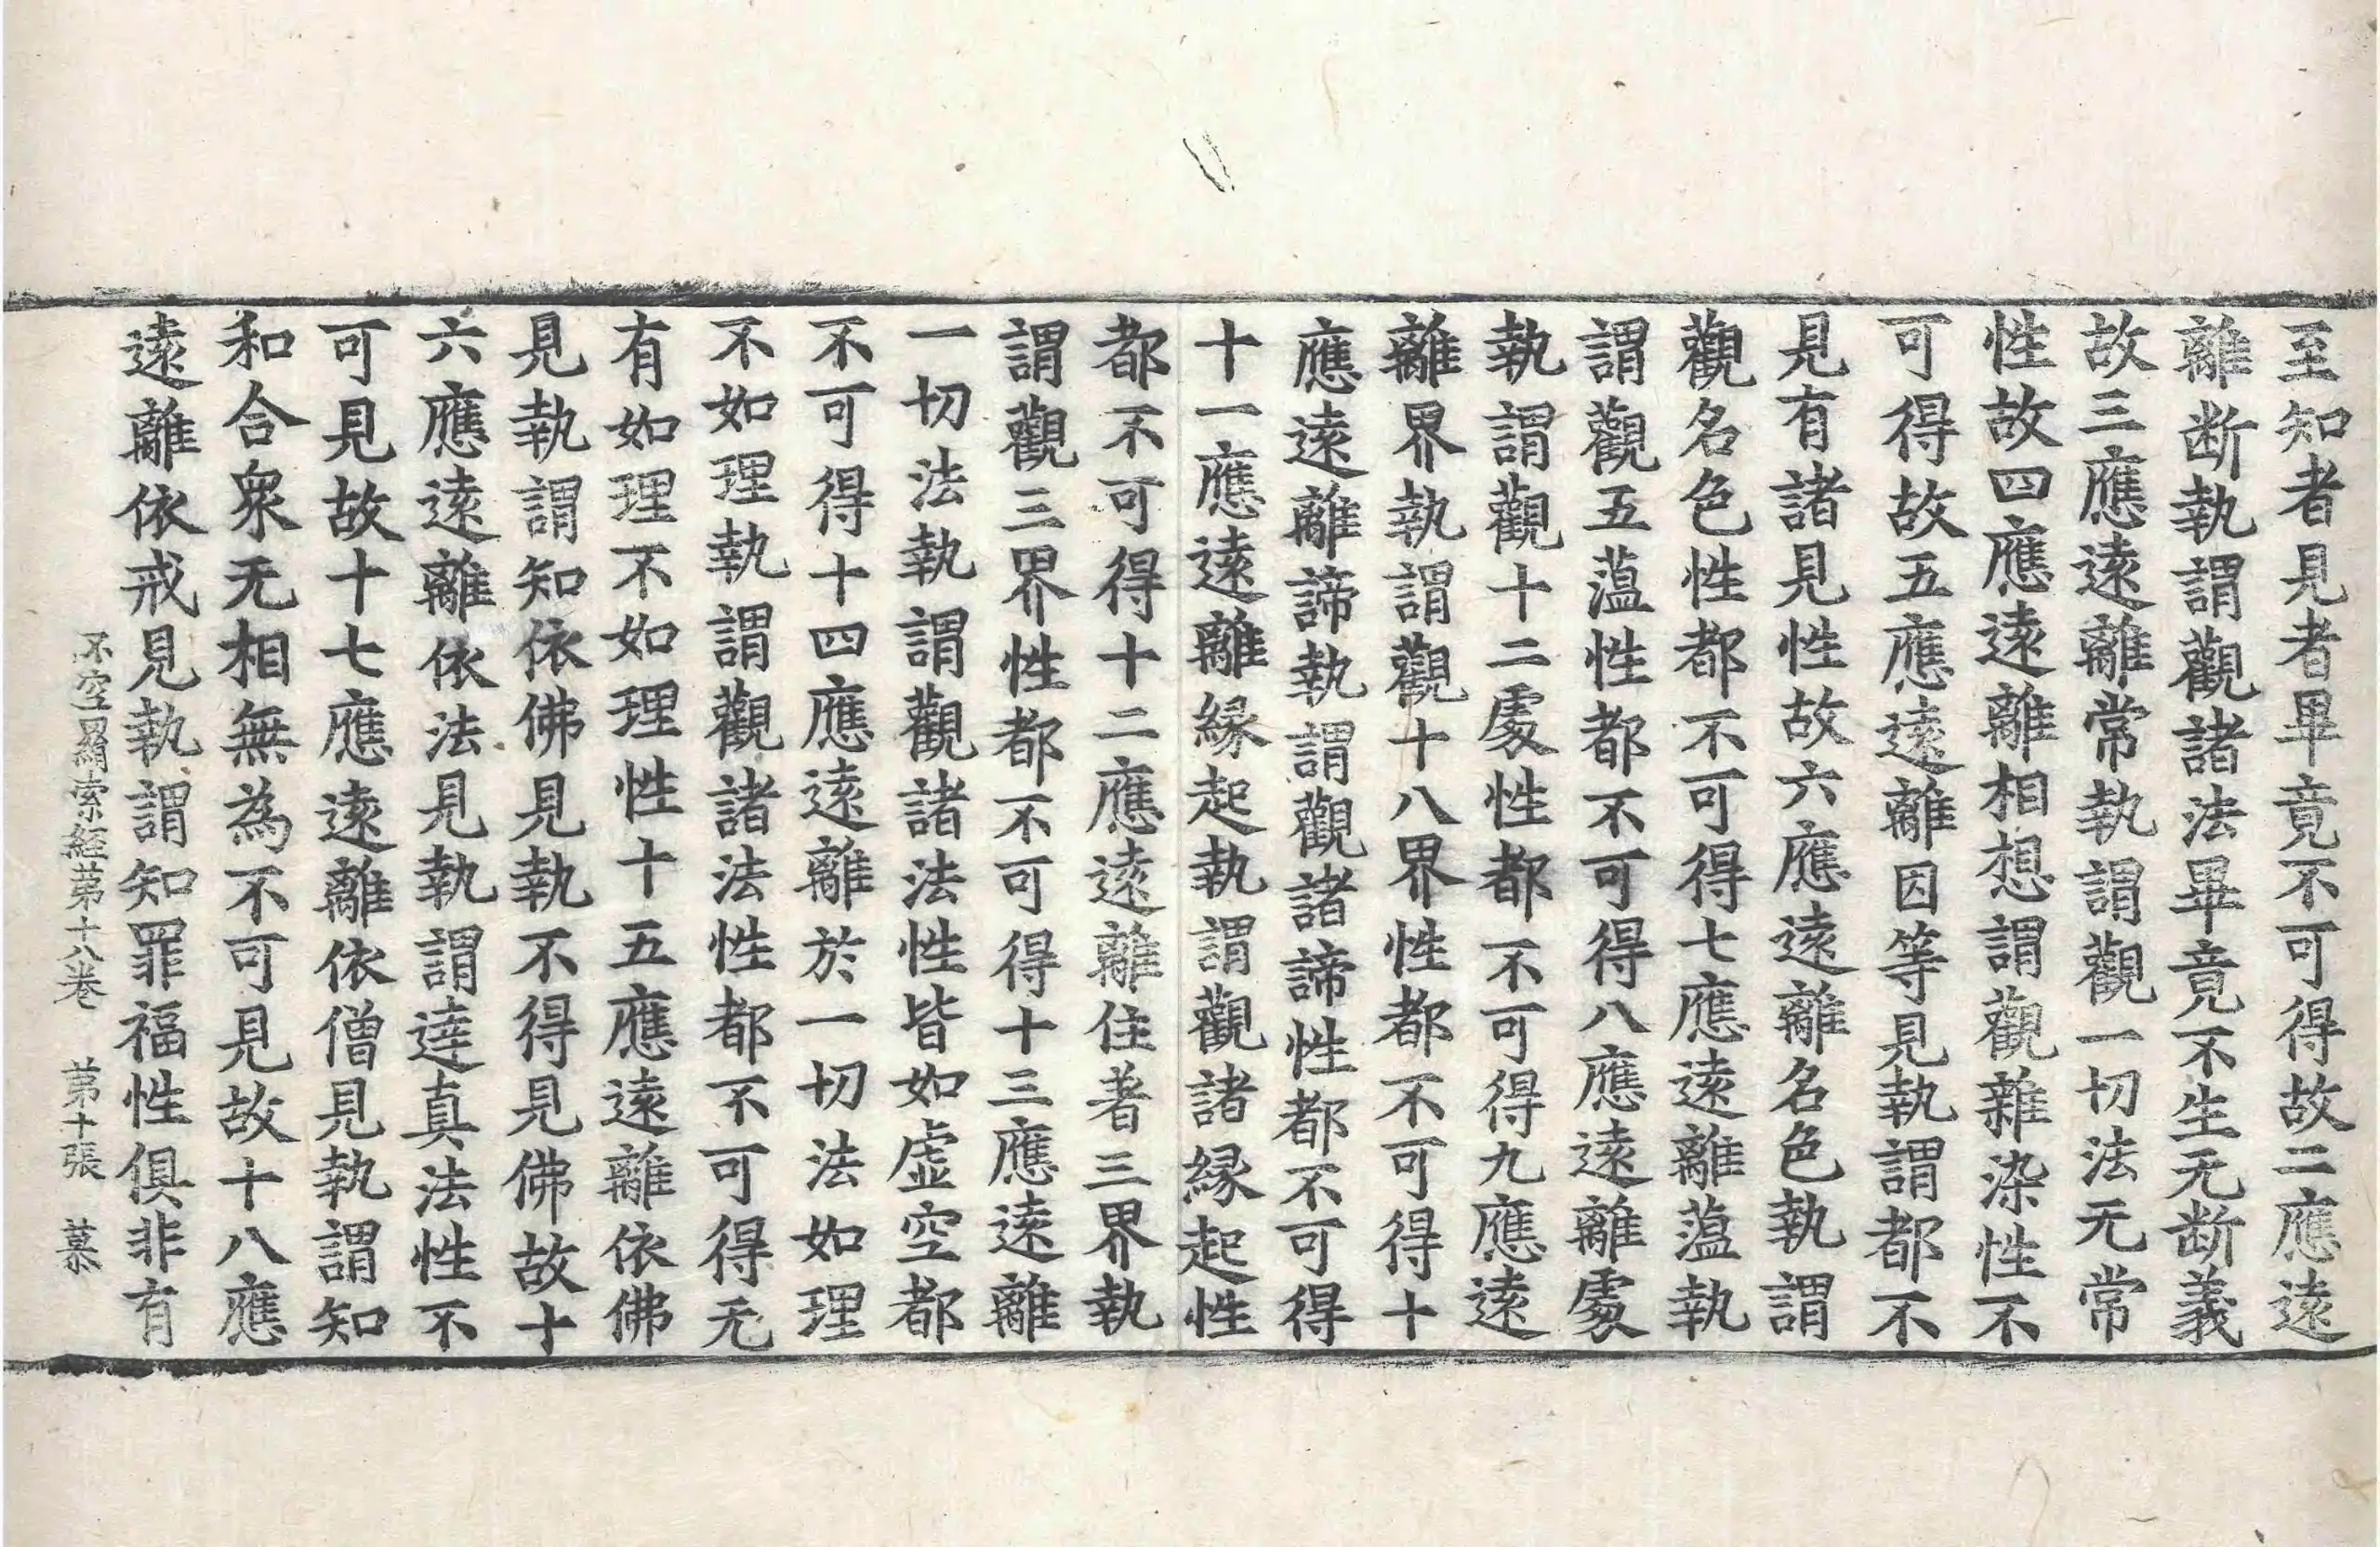 至知者見者畢竟不可得故二應遠
離断執謂觀諸法畢竟不生无断義
故三應遠離常執謂觀一切法无常
性故四應遠離相想謂觀雜染性不
可得故五應遠離因等見執謂都不
見有諸見性故六應遠離名色執謂
觀名色性都不可得七應遠離藴執
謂觀五藴性都不可得八應遠離處
執謂觀十二處性都不可得九應遠
離界執謂觀十八界性都不可得十
應遠離諦執謂觀諸諦性都不可得
十一應遠離縁起執謂觀諸縁起性
都不可得十二應遠離住著三界執
謂觀三界性都不可得十三應遠離
一切法執謂觀諸法性皆如虚空都
不可得十四應遠離於一切法如理
不如理執謂觀諸法性都不可得无
有如理不如理性十五應遠離依佛
見執謂知依佛見執不得見佛故十
六應遠離依法見執謂達真法性不
可見故十七應遠離依僧見執謂知
和合衆无相無為不可見故十八應
遠離依戒見執謂知罪福性俱非有
不空羂索経第十八卷　第十張　慕